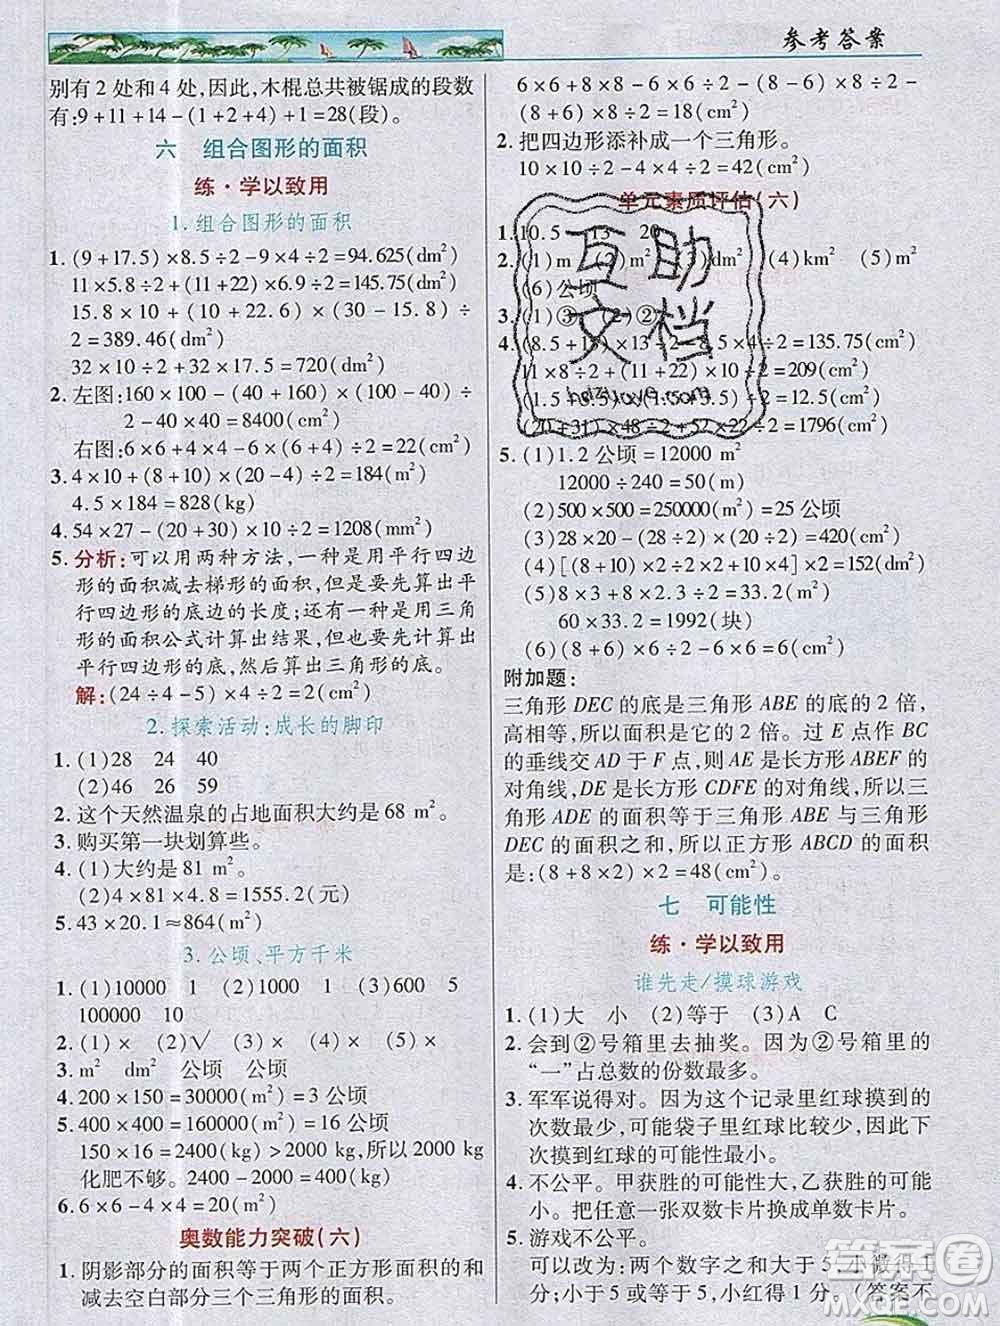 参考答案
别有2处和4处,因此,木棍总共被锯成的段数
有:9+11+14-(1+2+4)+1=28(段)。
六 组合图形的面积
练·学以致用
1.组合图形的面积
1. (9+17.5)×8.5÷2-9×4÷2=94.625(dm²)
11×5.8÷2+(11+21)×6.9÷2=145.75(dm²)
15.8×10+(10+12.6)×(30-15.8)÷
2=389.46(dm²)
32×10÷2+32×35÷2=720(dm²)
2. 左图:160×100-(160+40)×(100-40)÷
2-40×40÷2=8400(cm²)
右图:6×6+4×4-6×(6+4)÷2=22(cm²)
3. 4×10+(8+10)×(20-4)÷2=184(m²)
4.5×184=828(kg)
4. 54×27-(20+30)×10÷2=1208(mm²)
5. 分析:可以用两种方法,一种是用平行四边
形的面积减去梯形的面积,但是要先算出平
行四边形的底边的长度;还有一种是用三角
形的面积公式计算出结果,同样也要先算出
平行四边形的底,然后算出三角形的底。
解:(24÷4-5)×4÷2=2(cm²)
2.探索活动:成长的脚印
1. (1)28 24 40
(2)46 26 59
2. 这个天然温泉的占地面积大约是68 m²。
3. 购买第一块划算些。
4. (1)大约是81 m²。
(2)4×81×4.8=1555.2(元)
5. 43×20.1≈864(m²)
3.公顷、平方千米
1. (1)10000 1 (2)1000 600 5
100000 10
2. (1)× (2)√ (3)× (4)×
3. m² dm² 公顷 公顷
4. 200×150=30000(m²)=3(公顷)
5. 400×400=160000(m²)=16公顷
150×16=2400(kg),所以2000 kg
化肥不够。2400-2000=400(kg)
6. 6×6-4×4=20(m²)
奥数能力突破(六)
1. 阴影部分的面积等于两个正方形面积的和
减去空白部分三个三角形的面积。
6×6+8×8-6×6÷2-(8-6)×8÷2-
(8+6)×8÷2=18(cm²)
2. 把四边形添补成一个三角形。
10×10÷2-4×4÷2=42(cm²)
单元素质评估(六)
1. 10.5 13 20
2. (1)m dm² (4)km² (5)m²
(6)公顷
3. (1)③ (2)②
4. (8.5+ )×13÷2-8.5×4÷2=135.75(cm²)
11×8÷2+(11+22)× ÷2=209(cm²)
÷2=12.5(cm²)
(20+31)×48÷2+52×22÷2=1796(cm²)
5. (1)1.2公顷=12000 m²
12000÷240=50(m)
(2)500×500=250000(m²)=25公顷
(3)30×28-(28÷2)×(20÷2)×3=420(m²)
(4)[(8+10)×2÷2+2×10×4]×2=152(dm²)
(5)8×3+(8+3.5)×1.6÷2=33.2(m²)
60×33.2=1992(块)
(6)(8-2)×6÷2+6×2÷2=24(m²)
附加题:
三角形DEC的底是三角形ABE的底的2倍,
高相等,所以面积是它的2倍。过E点作BC
的垂线交AD于F点,则AE是长方形ABEF
的对角线,DE是长方形CDFE的对角线,所以三
角形ADE的面积等于三角形ABE与三角形
DEC的面积之和,所以正方形ABCD的面积
是:(8+8×2)×2=48(cm²)
七 可能性
练·学以致用
谁先走/摸球游戏
1. (1)大 小 (2)等于 (3)A C
2. 会到②号箱里去抽奖。因为②号箱里的
“一”占总数的份数最多。
3. 军军说得对。因为这个记录里红球摸到的
次数最少,可能袋子里红球比较少,因此下
次摸到红球的可能性最小。
4. 不公平。甲获胜的可能性大,乙获胜的可能性
小。把任意一张双数卡片换成单数卡片。
5. 游戏不公平。
可以改为:两个数字之和大于5,小微得1
分;小于5或等于5,小红得1分。(答案不
互助
文档
答案圈
MXQE.COM